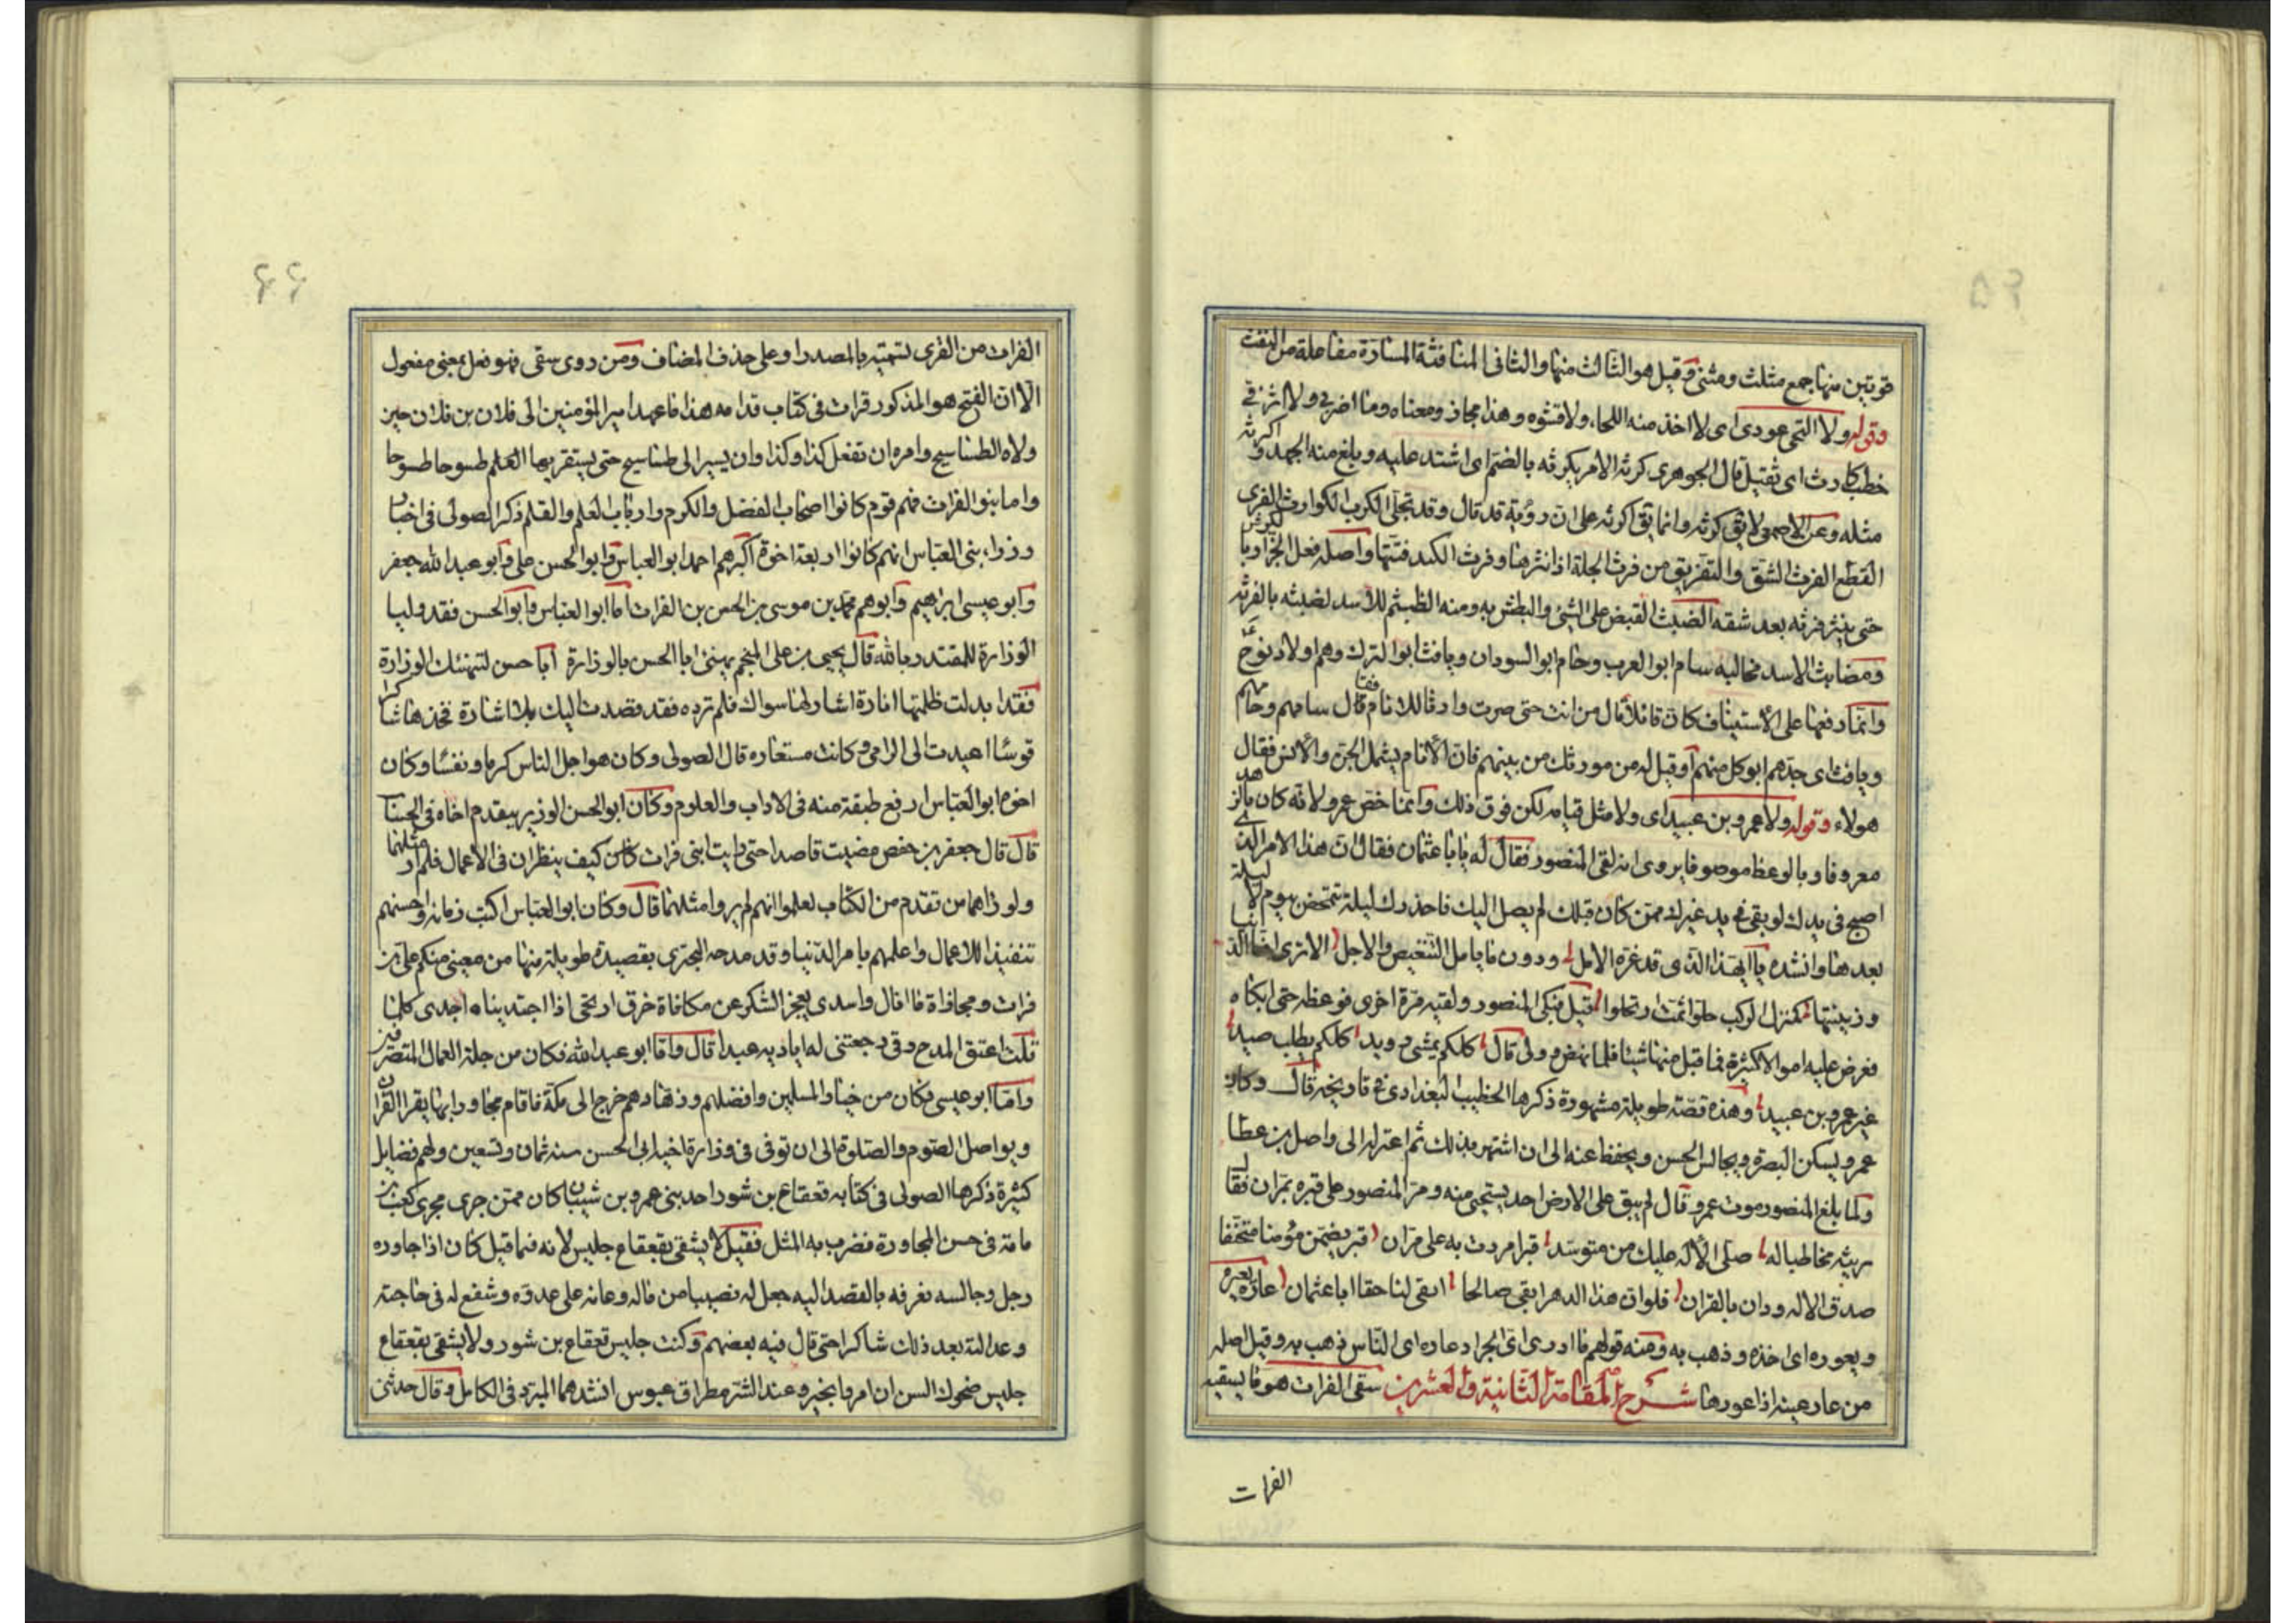 قرينتين منها جمع مثلث ومثنى وقيل هو الثالث منها والثاني المنافثة المسارّة مفاعلة من النفث
وقوله ولا التحى عودى اى لا اخذ منه اللحاء ولا قشوه وهذا مجاز ومعناه وما اضر بى ولا اثر فى
خطب كارث اى ثقيل قال الجوهرى كرثه الامر يكرثه بالضم اى اشتد عليه وبلغ منه الجهد واكرثه
مثله وعن الاصمعى لا يق كرثه وانما يق اكرثه على ان رؤبة قد قال وقد تجلى الكرب الكوارث الفرى
القطع الفرث الشق والتفريق من فرث الجلة اذا نثرها وفرث الكبد فتتها واصله فعل الجزار بالكرش
حتى ينثر فرثه بعد شقه الضبث القبض على الشئ والبطش به ومنه الضيثم للاسد لضبثه بالفريسة
ومضابث الاسد مخاليبه سام ابو العرب وحام ابو السودان ويافث ابو الترك وهم اولاد نوح ع
وانما رفعها على الاستيناف كان قائلا قال من انت حتى صرت وارثا للانام فقال سامهم وحامهم
ويافث اى جدهم ابو كل منهم او قيل له من مورثك من بينهم فان الانام يشمل الجن والانس فقال
هولاء وقوله ولا عمرو بن عبيد اى ولا مثل قيامه لكن فوق ذلك وانما خص عمرو لانه كان بالزهد
معروفا وبالوعظ موصوفا يروى انه لقى المنصور فقال له يابا عثمان فقال ان هذا الامر الذى
اصبح فى يدك لو بقى فى يد غيرك ممن كان قبلك لم يصل اليك فاحذرك ليلة تتمخض بيوم لا ليلة
بعدها وانشده يا ايهذا الذى قد غره الامل ودون ما يامل التنغيص والاجل الا ترى انما الدنيا
وزينتها كمنزل الركب حلوا ثمت ارتحلوا قيل فبكى المنصور ولقيه مرة اخرى فوعظه حتى ابكاه
فعرض عليه اموالا كثيرة فما قبل منها شيئا فلما نهض وولى قال كلكم يمشى رويد كلكم يطلب صيد
غير عمرو بن عبيد وهذه قصة طويلة مشهورة ذكرها الخطيب البغدادى فى تاريخه قال وكان
عمرو يسكن البصرة ويجالس الحسن ويحفظ عنه الى ان اشتهر بذلك ثم اعتزله الى واصل بن عطا
ولما بلغ المنصور موت عمرو قال لم يبق على الارض احد يستحيى منه ومر المنصور على قبره بمران فقال
يرثيه مخاطبا له صلى الاله عليك من متوسد قبرا مررت به على مران قبر يضمن مؤمنا متحنفا
صدق الاله ودان بالقران فلو ان هذا الدهر ابقى صالحا ابقى لنا حقا ابا عثمان عاره يعيره
ويعوره اى اخذه وذهب به ومنه قولهم ما ادرى اى الجراد عاره اى الناس ذهب به وقيل اصله
من عار عينه اذا عورها شرح المقامة الثانية والعشرين سقى الفرات هو ما يسقيه
الفرات
الفرات من القرى لتسميته بالمصدر او على حذف المضاف ومن روى سقى فهو فعل بمعنى مفعول
الا ان الفتح هو المذكور قرات فى كتاب قدامه هذا ما عهد امير المؤمنين الى فلان بن فلان حين
ولاه الطساسيج وامره ان تفعل كذا وكذا وان يسير الى طساسيج حتى يستقر بها العلم طسوجا طسوجا
واما بنو الفرات فهم قوم كانوا اصحاب الفضل والكرم وارباب العلم والقلم ذكر الصولى فى اخبار
وزراء بنى العباس انهم كانوا اربعة اخوة اكبرهم احمد ابو العباس وابو الحسن على وابو عبد الله جعفر
وابو عيسى ابراهيم وابوهم محمد بن موسى بن الحسن بن الفرات اما ابو العباس وابو الحسن فقد وليا
الوزارة للمقتدر بالله قال يحيى بن على المنجم يهنئ ابا الحسن بالوزارة ابا حسن لتهنئك الوزارة
فقد ابدلت ظلمتها انارة اشار لها سواك فلم ترده فقد قصدت اليك بلا اشارة فخذها شاكرا
قوسا اعيدت الى الرامى وكانت مستعاره قال الصولى وكان هو اجل الناس كرما ونفسا وكان
اخوه ابو العباس ارفع طبقة منه فى الاداب والعلوم وكان ابو الحسن الوزير يتقدم اخاه فى الحساب
قال قال جعفر بن حفص مضيت قاصدا حتى رايت ابنى فرات كيف ينظران فى الاعمال فلم ار مثلهما
ولو راهما من تقدم من الكتاب لعلموا انهم لم يروا مثلهما قال وكان ابو العباس اكتب زمانه واحسنهم
تنفيذا للاعمال واعلمهم بامر الدنيا وقد مدحه البحترى بقصيدة طويلة منها من معينى منكم على بن
فرات ومجازاة ما انال واسدى يعجز الشكر عن مكافاة خرق اريحى اذا اجتديناه اجدى كلما
قلت اعتق المدح رقى رجعتنى له اياديه عبدا قال واما ابو عبد الله فكان من جلة العمال المتصرفين
واما ابو عيسى فكان من خيار المسلمين وافضلهم وزهادهم خرج الى مكة فاقام مجاورا بها يقرا القران
ويواصل الصوم والصلوة الى ان توفى فى وزارة اخيه ابى الحسن سنه ثمان وتسعين ولهم فضايل
كثيرة ذكرها الصولى فى كتابه قعقاع بن شور احد بنى عمرو بن شيبان كان ممن جرى مجرى كعب بن
مامة فى حسن المجاورة فضرب به المثل فقيل لا يشقى بقعقاع جليس لانه فيما قيل كان اذا جاوره
رجل وجالسه فعرفه بالقصد اليه جعل له نصيبا من ماله وعانه على عدوه وشفع له فى حاجته
وعدا لته بعد ذلك شاكرا حتى قال فيه بعضهم وكنت جليس قعقاع بن شور ولا يشقى بقعقاع
جليس ضحوك السن ان امروا بخير وعند الشر مطراق عبوس انشدهما المبرد فى الكامل وقال حدثنى